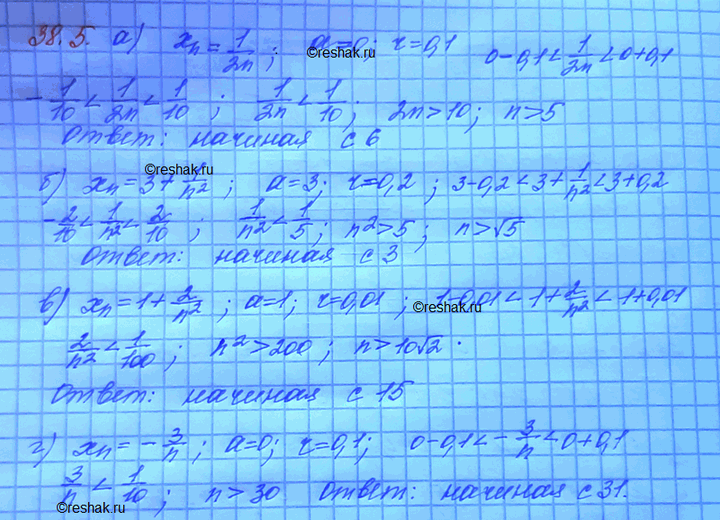 38.5. а) xₙ = 1/2n; a=0; r=0,1 0-0,1<1/2n<0+0,1
©reshak.ru
-1/10<1/2n<1/10; 1/2n<1/10; 2n>10; n>5
Ответ: начиная с 6
©reshak.ru
б) xₙ=3+1/n²; a=3; r=0,2; 3-0,2<3+1/n²<3+0,2
-2/10<1/n²<2/10; 1/n²<1/5; n²>5; n>√5
Ответ: начиная с 3
в) xₙ=1+2/n²; a=1; r=0,01; 1-0,01<1+2/n²<1+0,01
©reshak.ru
2/n²<1/100; n²>200; n>10√2.
Ответ: начиная с 15
г) xₙ=-3/n; a=0; r=0,1; 0-0,1<-3/n<0+0,1
3/n<1/10; n>30 Ответ: начиная с 31.
©reshak.ru